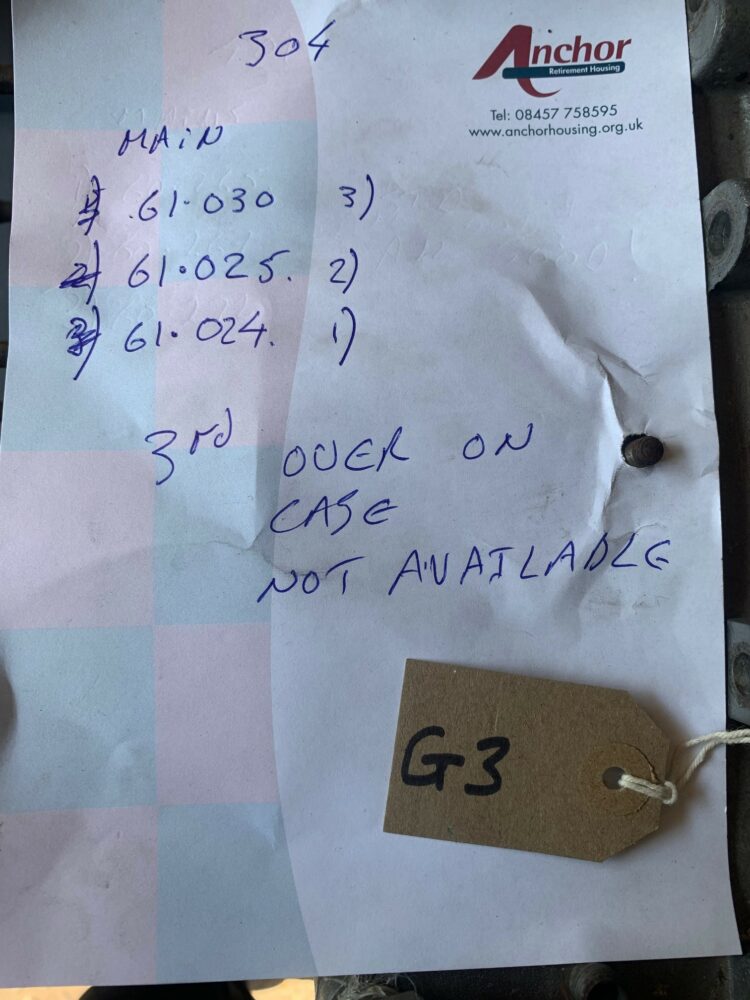 304
Anchor
Retirement Housing
Tel: 08457 758595
www.anchorhousing.org.uk
MAIN
1) 61.030 3)
2) 61.025. 2)
3) 61.024. 1)
3rd OVER ON
CASE
NOT AVAILABLE
G3